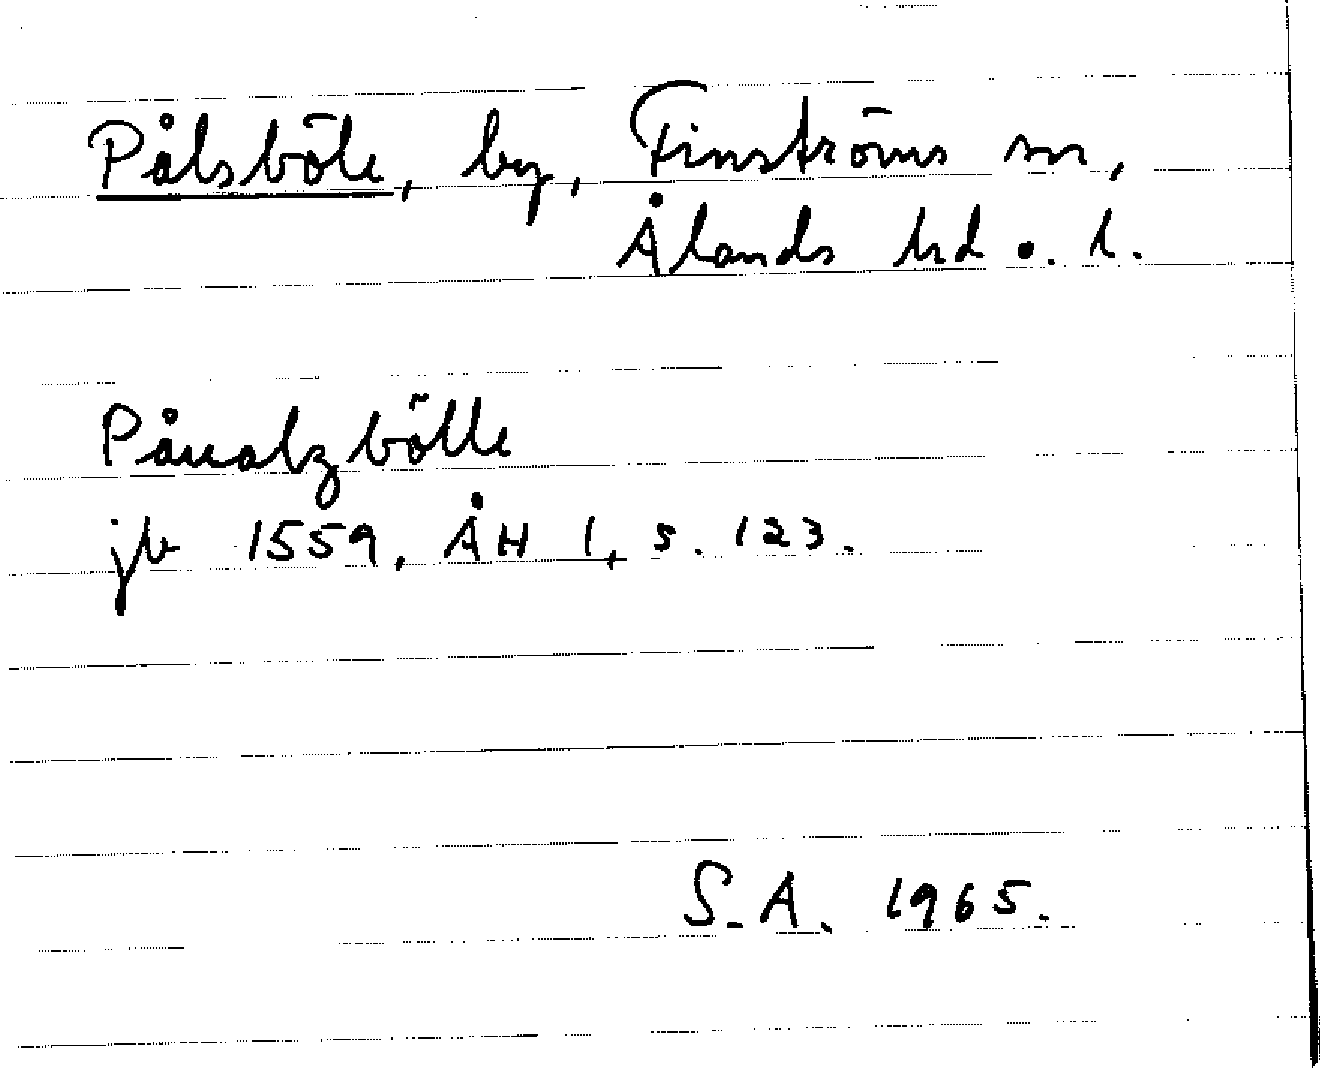 Pålsböle, by, Finströms sn,
Ålands hd o. l.
Påualzbölle
jb 1559, ÅH 1, s. 123.
S.A. 1965.